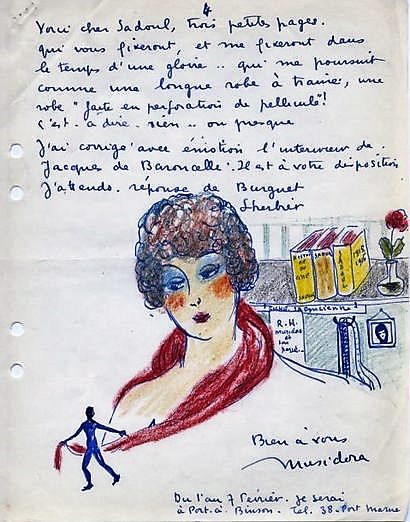 4
Voici cher Sadoul, trois petites pages.
qui vous fixeront, et me fixeront dans
le temps d'une gloire .. qui me poursuit
comme une longue robe à traine, une
robe "faite en perforation de pellicule"!
C'est. à dire. rien .. ou presque
J'ai corrigé avec émotion l'interview de.
Jacques de Baroncelli. Il est à votre disposition
J'attends. réponse de Burguet
Lherbier
R. H.
musidora
et
Bien à vous
Musidora
Du 1 au 7 février. je serai
à Port. à Binson. Tel. 38. Port Marne